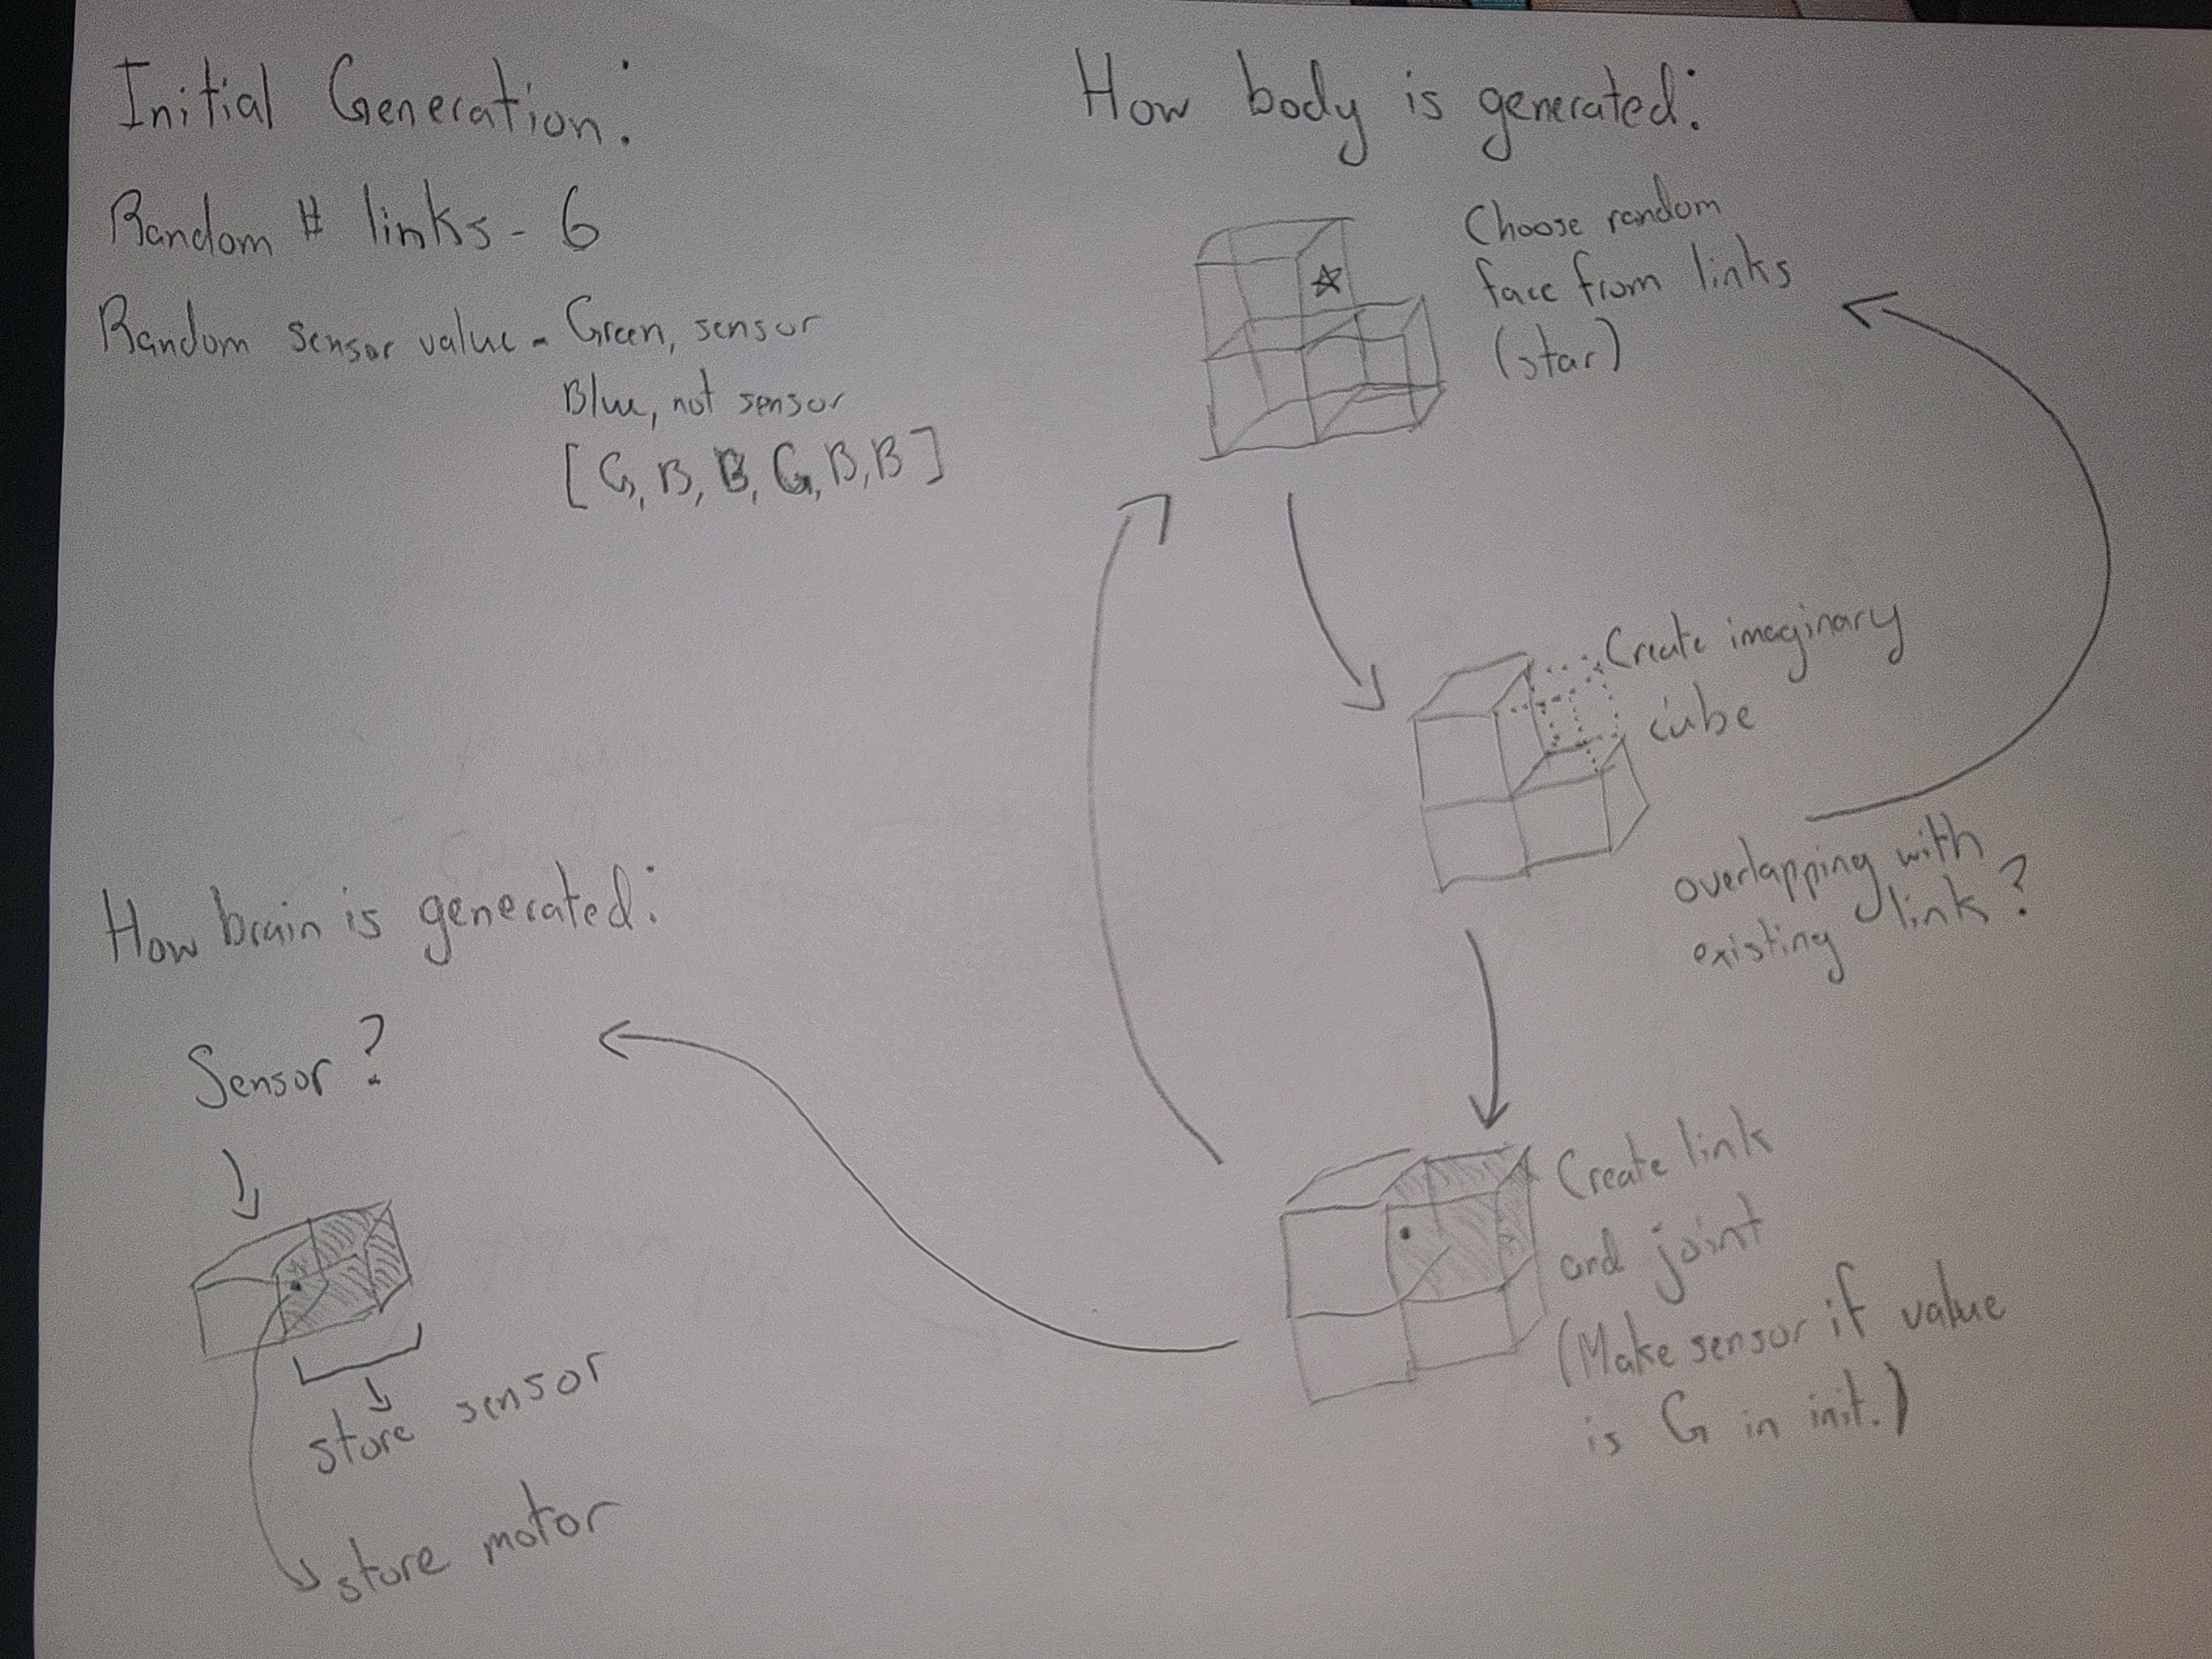 Initial Generation:
Random # links - 6
Random sensor value - Green, sensor
Blue, not sensor
[G, B, B, G, B, B]
How body is generated:
Choose random
face from links
(star)
Create imaginary
cube
overlapping with
existing link?
Create link
and joint
(Make sensor if value
is G in init.)
How brain is generated:
Sensor?
store sensor
store motor